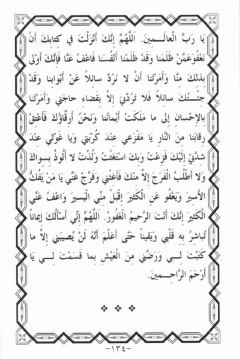 يَا رَبَّ الْعَالَمِينَ. اَللَّهُمَّ إِنَّكَ أَنْزَلْتَ فِي كِتَابِكَ أَنْ
نَعْفُوَ عَمَّنْ ظَلَمَنَا وَقَدْ ظَلَمْنَا أَنْفُسَنَا فَاعْفُ عَنَّا فَإِنَّكَ أَوْلَى
بِذَلِكَ مِنَّا وَأَمَرْتَنَا أَنْ لَا نَرُدَّ سَائِلاً عَنْ أَبْوَابِنَا وَقَدْ
جِئْتُكَ سَائِلاً فَلَا تَرُدَّنِي إِلَّا بِقَضَاءِ حَاجَتِي وَأَمَرْتَنَا
بِالْإِحْسَانِ إِلَى مَا مَلَكَتْ أَيْمَانُنَا وَنَحْنُ أَرِقَّاؤُكَ فَأَعْتِقْ
رِقَابَنَا مِنَ النَّارِ يَا مَفْزَعِي عِنْدَ كُرْبَتِي وَيَا غَوْثِي عِنْدَ
شِدَّتِي إِلَيْكَ فَزِعْتُ وَبِكَ اسْتَغَثْتُ وَلُذْتُ لَا أَلُوذُ بِسِوَاكَ
وَلَا أَطْلُبُ الْفَرَجَ إِلَّا مِنْكَ فَأَغِثْنِي وَفَرِّجْ عَنِّي يَا مَنْ يَفُكُّ
الْأَسِيرَ وَيَعْفُو عَنِ الْكَثِيرِ اِقْبَلْ مِنِّي الْيَسِيرَ وَاعْفُ عَنِّي
الْكَثِيرَ إِنَّكَ أَنْتَ الرَّحِيمُ الْغَفُورُ. اَللَّهُمَّ إِنِّي أَسْأَلُكَ إِيمَاناً
تُبَاشِرُ بِهِ قَلْبِي وَيَقِيناً حَتَّى أَعْلَمَ أَنَّهُ لَنْ يُصِيبَنِي إِلَّا مَا
كَتَبْتَ لِي وَرَضِّنِي مِنَ الْعَيْشِ بِمَا قَسَمْتَ لِي يَا
أَرْحَمَ الرَّاحِمِينَ.
-١٣٤-